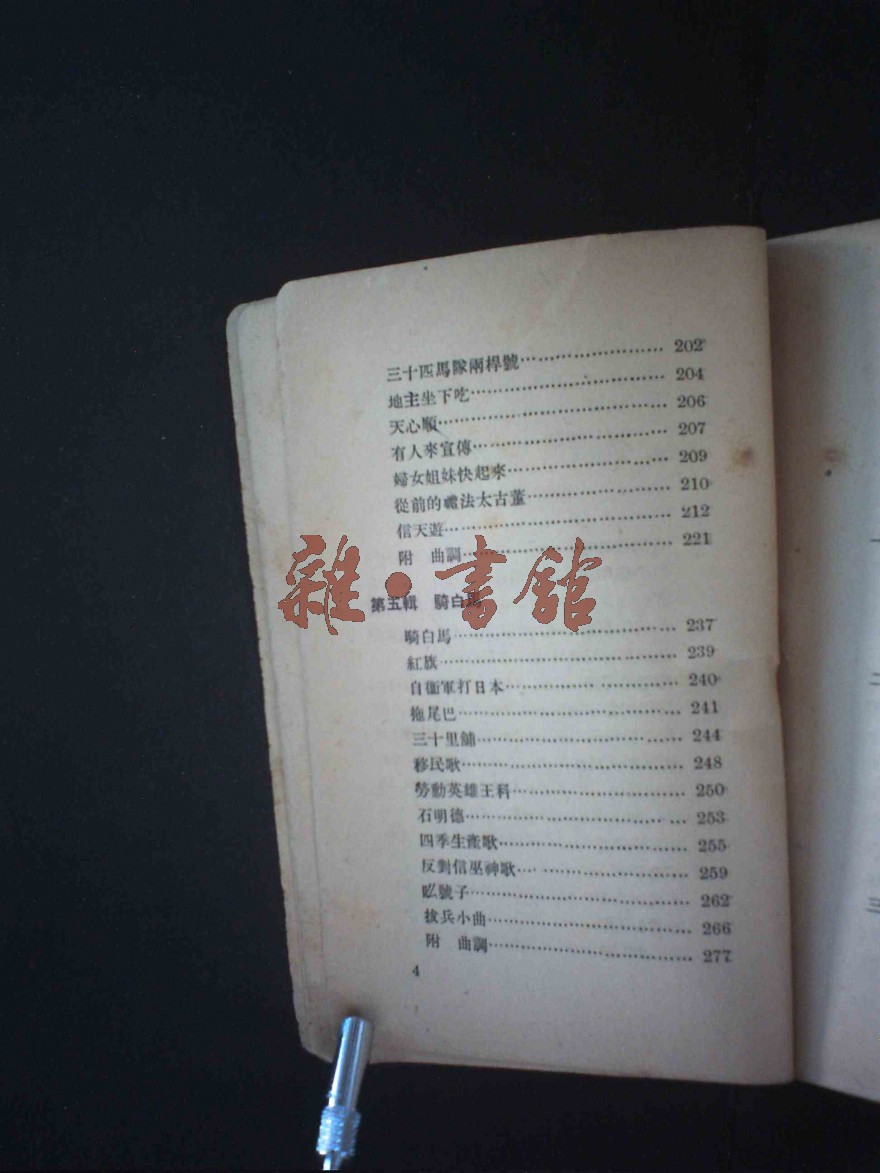 三十匹馬隊兩桿號…………………… 202
地主坐下吃…………………… 204
天心順…………………… 206
有人來宣傳…………………… 207
婦女姐妹快起來…………………… 209
從前的禮法太古董…………………… 210
信天遊…………………… 212
附 曲調…………………… 221
第五輯 騎白馬
騎白馬…………………… 237
紅旗…………………… 239
自衞軍打日本…………………… 240
拖尾巴…………………… 241
三十里舖…………………… 244
移民歌…………………… 248
勞動英雄王科…………………… 250
石明德…………………… 253
四季生產歌…………………… 255
反對信巫神歌…………………… 259
吆號子…………………… 262
拔兵小曲…………………… 266
附 曲調…………………… 277
4
雜·書館